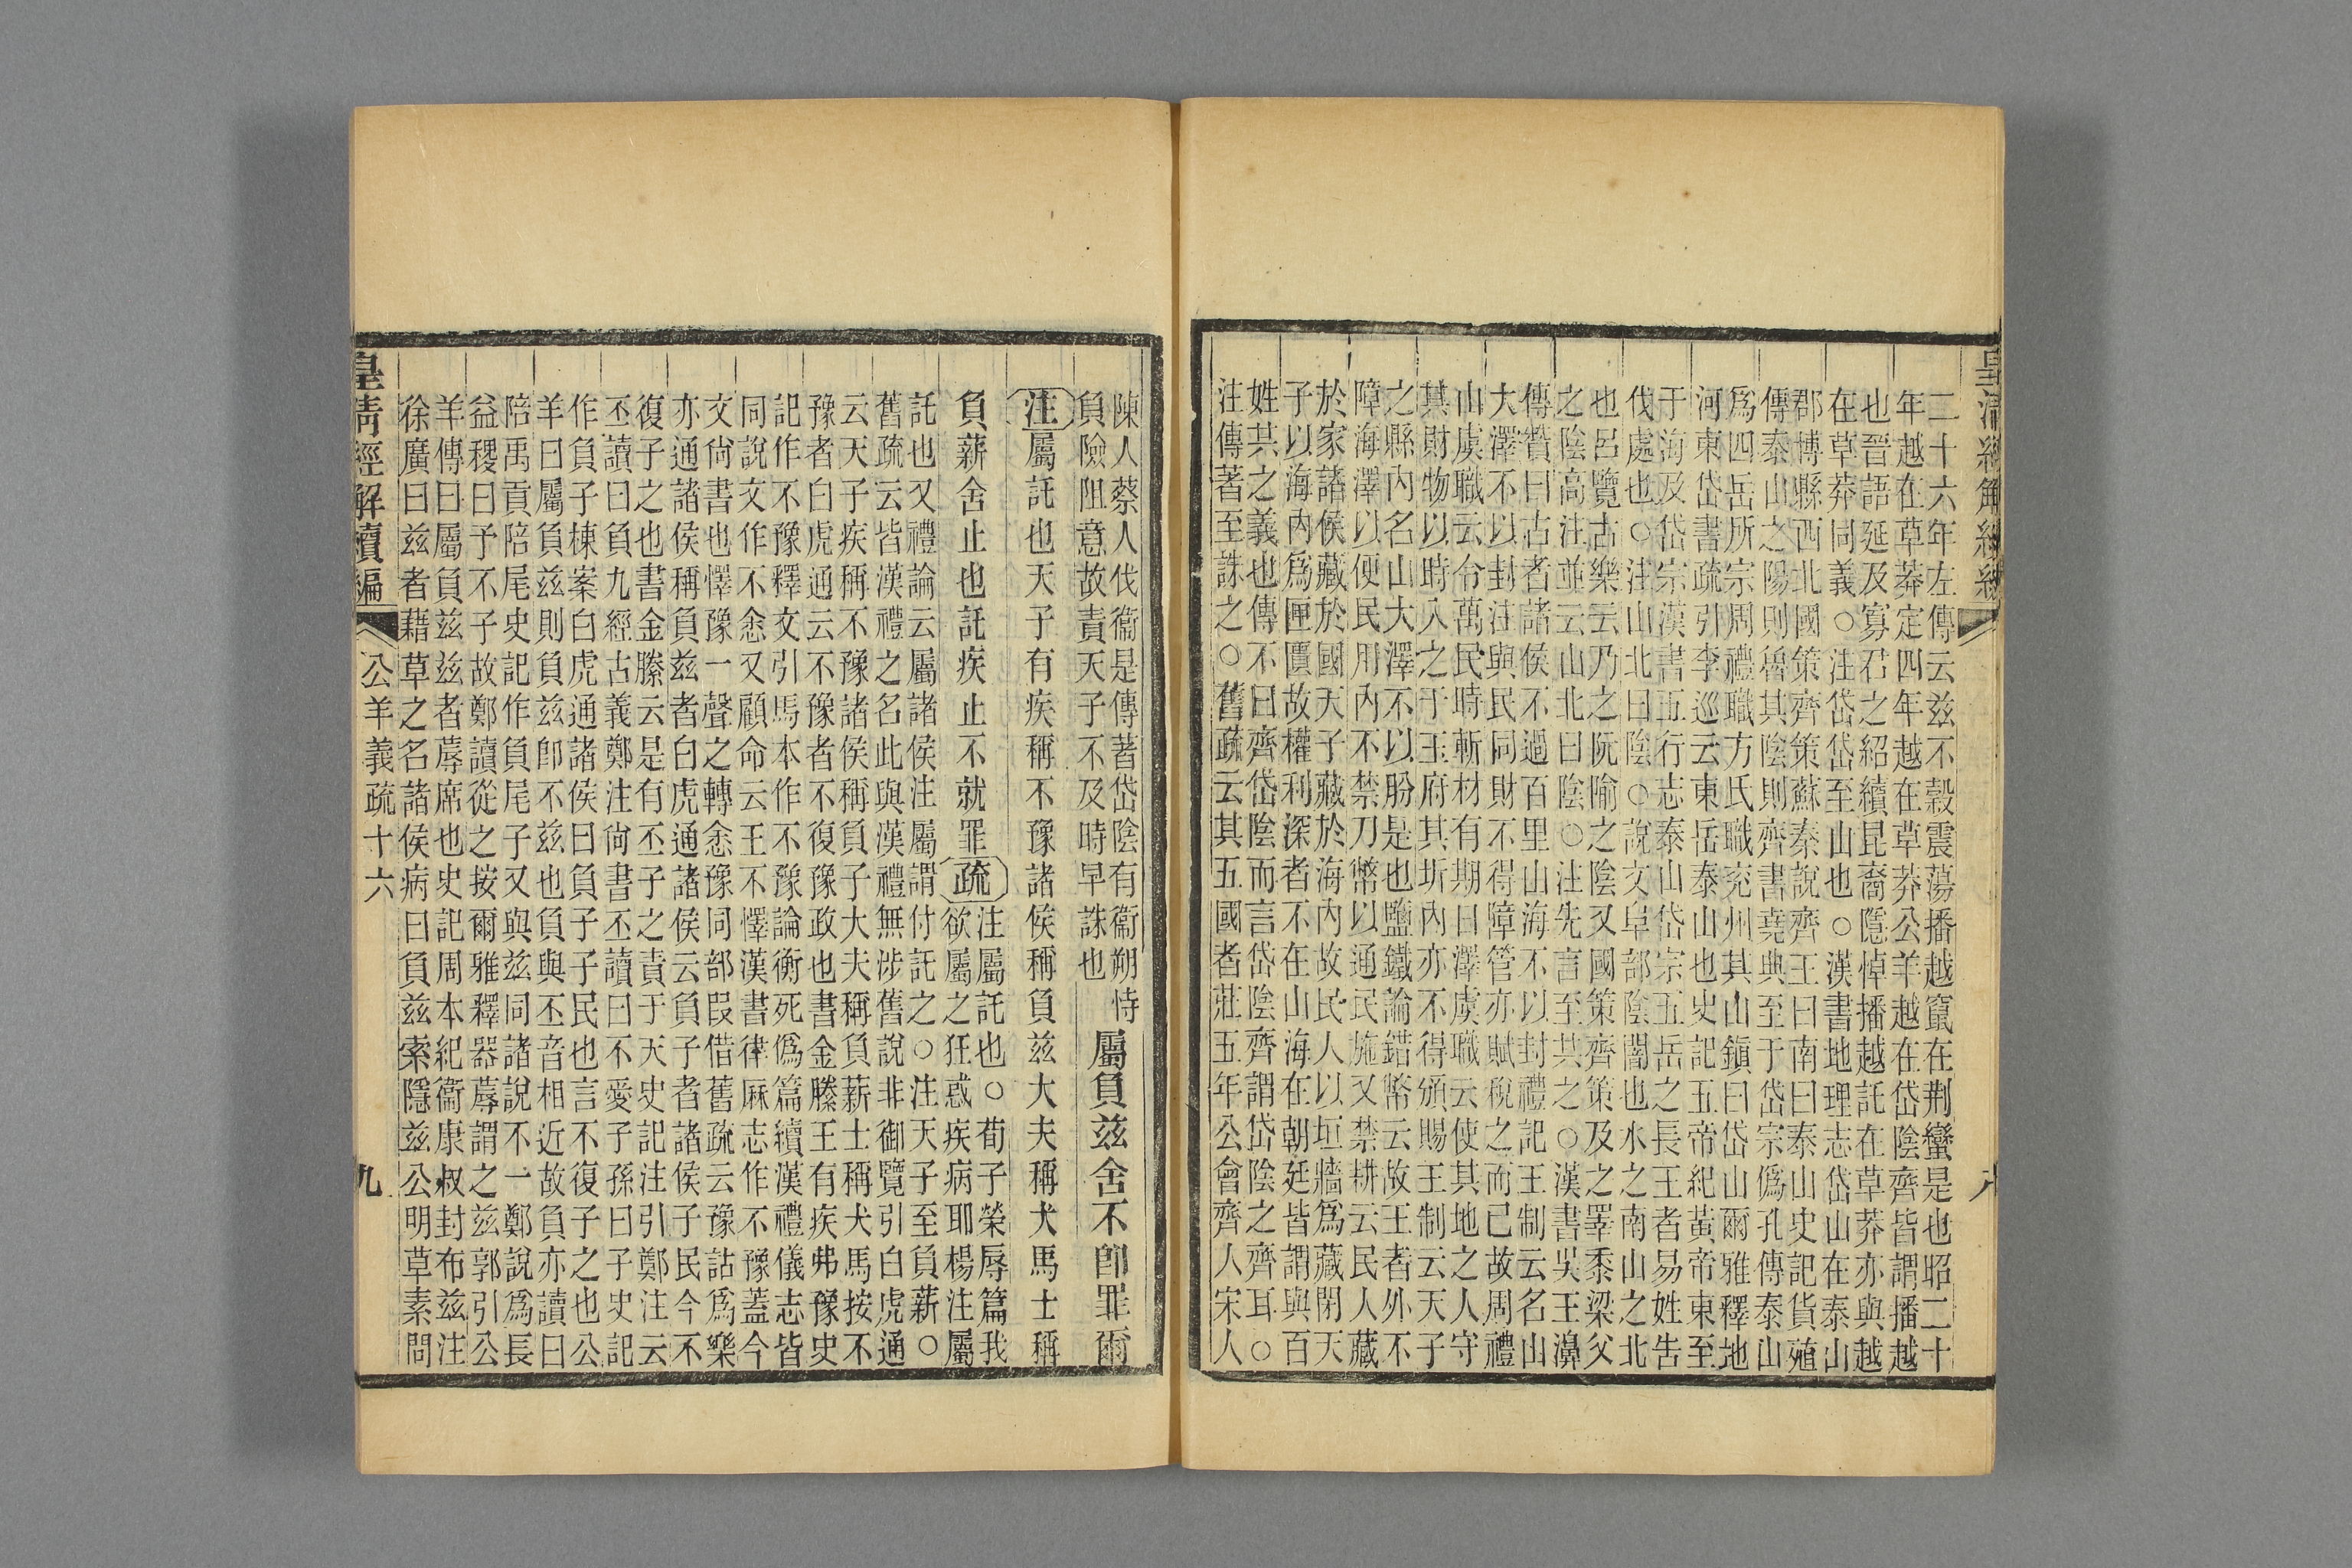 皇清經解續編
二十六年左傳云兹不穀震蕩播越竄在荆蠻是也昭二十
年越在草莽定四年越在草莽公羊越在岱陰齊皆謂播越
也晉語延及寡君之紹續昆裔隱悼播越託在草莽亦與越
在草莽同義○注岱岱至山也○漢書地理志岱山在泰山
郡博縣西北國策齊策蘇秦說齊王曰南曰泰山史記貨殖
傳泰山之陽則魯其陰則齊書堯典至于岱宗僞孔傳泰山
爲四岳所宗周禮職方氏職兖州其山鎭曰岱山爾雅釋地
河東岱書疏引李巡云東岳泰山也史記五帝紀黃帝東至
于海及岱宗漢書五行志泰山岱宗五岳之長王者易姓告
伐處也○注山北曰陰○說文𨸏部陰闇也水之南山之北
也呂覽古樂云乃之阮隃之陰又國策齊策及之睪黍梁父
之陰高注並云山北曰陰○注先言至其之○漢書吳王濞
傳贊曰古者諸侯不過百里山海不以封禮記王制云名山
大澤不以封注與民同財不得障管亦賦稅之而已故周禮
山虞職云令萬民時斬材有期日澤虞職云使其地之人守
其財物以時入之于玉府其圻內亦不得頒賜王制云天子
之縣內名山大澤不以朌是也鹽鐵論錯幣云故王者外不
障海澤以便民用內不禁刀幣以通民施又禁耕云民人藏
於家諸侯藏於國天子藏於海內故民人以垣牆爲藏閉天
子以海內爲匣匱故權利深者不在山海在朝廷皆謂與百
姓共之義也傳不曰齊岱陰而言岱陰齊謂岱陰之齊耳○
注傳著至誅之○舊疏云其五國者莊五年公會齊人宋人
陳人蔡人伐衞是傳著岱陰有衞朔恃
負險阻意故責天子不及時早誅也
屬負兹舍不卽罪爾
注屬託也天子有疾稱不豫諸侯稱負兹大夫稱犬馬士稱
負薪舍止也託疾止不就罪疏
注屬託也○荀子榮辱篇我
欲屬之狂惑疾病耶楊注屬
託也又禮論云屬諸侯注屬謂付託之○注天子至負薪○
舊疏云皆漢禮之名此與漢禮無涉舊說非御覽引白虎通
云天子疾稱不豫諸侯稱負子大夫稱負薪士稱犬馬按不
豫者白虎通云不豫者不復豫政也書金縢王有疾弗豫史
記作不豫釋文引馬本作不豫論衡死僞篇續漢禮儀志皆
同說文作不悆又顧命云王不懌漢書律厤志作不豫蓋今
文尙書也懌豫一聲之轉悆豫同部叚借舊疏云豫詁爲樂
亦通諸侯稱負兹者白虎通諸侯云負子者諸侯子民今不
復子之也書金縢云是有丕子之責于天史記注引鄭注云
丕讀曰負九經古義鄭注尙書丕讀曰不愛子孫曰子史記
作負子棟案白虎通諸侯曰負子子民也言不復子之也公
羊曰屬負兹則負兹卽不兹也負與丕音相近故負亦讀曰
陪禹貢陪尾史記作負尾子又與兹同諸說不一鄭說爲長
益稷曰予不子故鄭讀從之按爾雅釋器蓐謂之兹郭引公
羊傳曰屬負兹兹者蓐席也史記周本紀衞康叔封布兹注
徐廣曰兹者藉草之名諸侯病曰負兹索隱兹公明草素問
皇清經解續編
公羊義疏十六
九